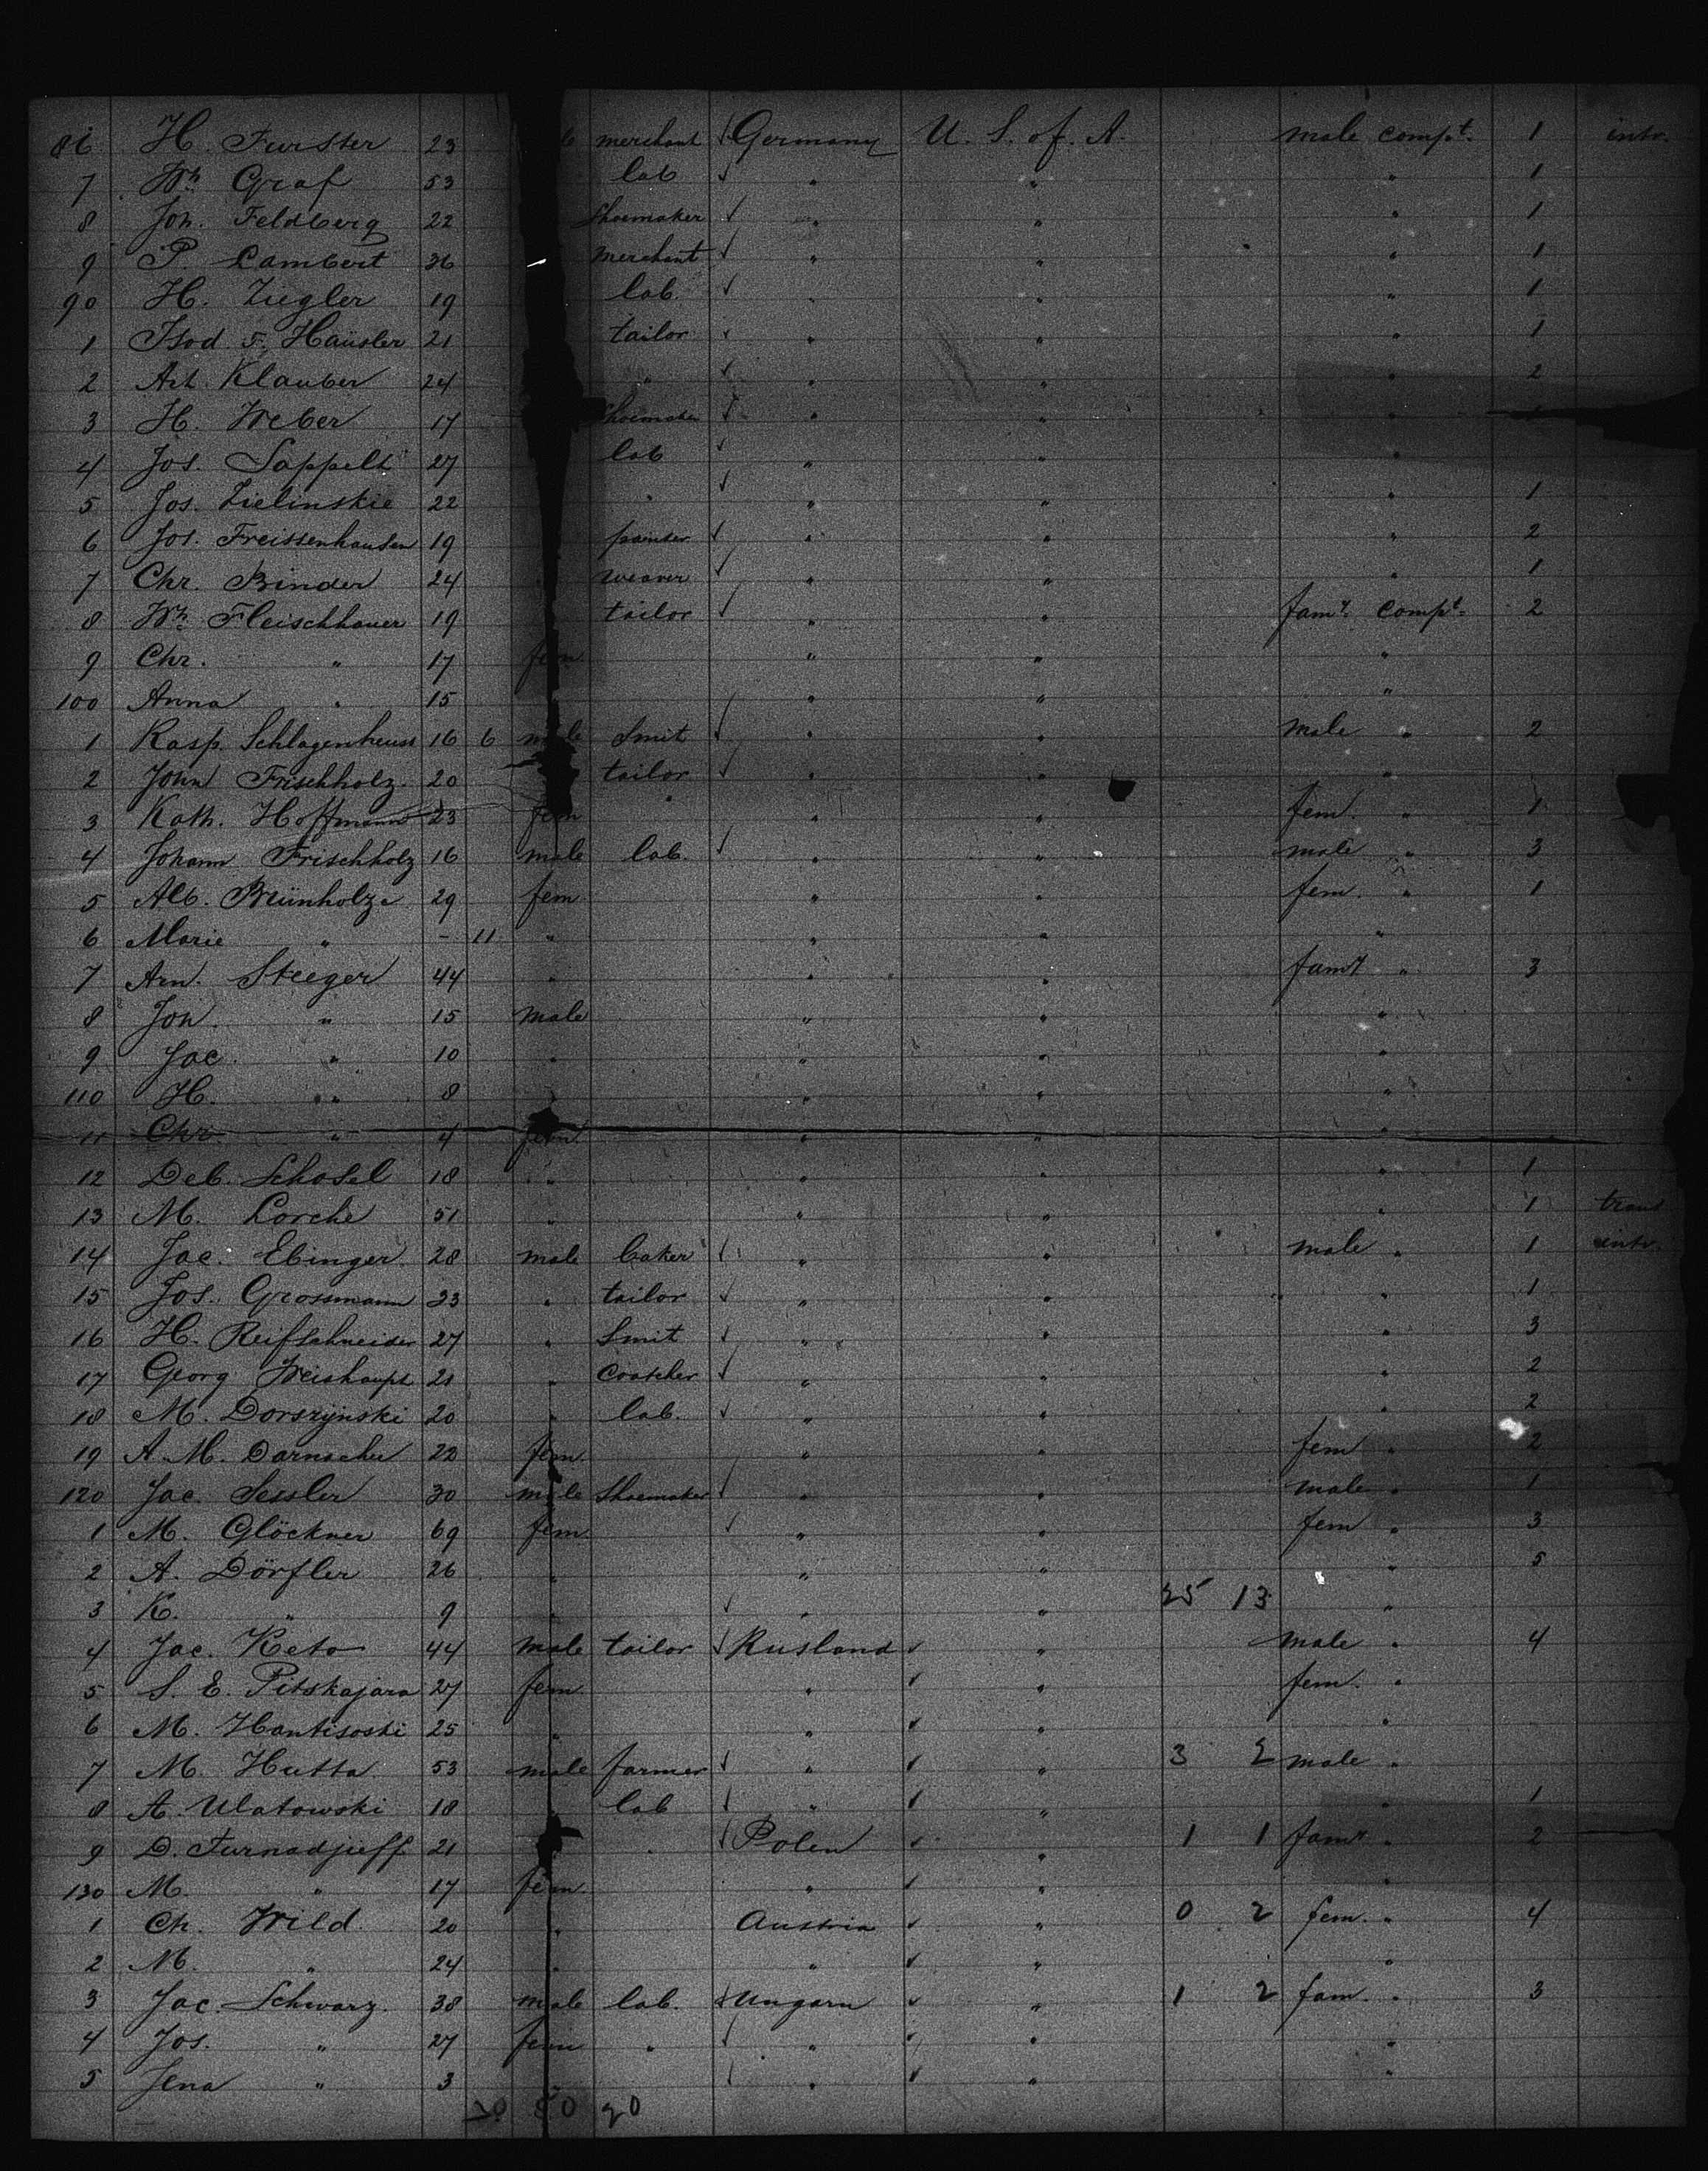 86 H. Furster 23 merchant √ Germany U. S. of. A. male compt. 1 intr.
7 Wh Graf 53 lab √ " " " 1
8 Joh. Feldberg 22 Shoemaker √ " " " 1
9 P. Lambert 36 merchant √ " " " 1
90 H. Ziegler 19 lab. √ " " " 1
1 Isod. Haüsler 21 tailor √ " " " 1
2 Klauber 24 " √ " " " 2
3 H. Weber 17 Shoemaker √ " " "
4 Jos. Sappelt 27 lab √ " " "
5 Jos. Zielinskie 22 " √ " " " 1
6 Jos. Freissenhausen 19 painter √ " " " 2
7 Chr. Binder 24 weaver √ " " " 1
8 Wh Fleischhauer 19 tailor √ " " famy. Compt. 2
9 Chr. " 17 fem. " " "
100 Anna " 15 " " "
1 Kasp. Schlagenheuss 16 6 male Smit √ " " male " 2
2 John Frischholz. 20 tailor √ " " "
3 Kath. Hoffmann 23 fem " " " fem. " 1
4 Johann Frischholz 16 male lab. √ " " male " 3
5 Alb. Brünholze 29 fem " " fem. " 1
6 Marie " - 11 " " " "
7 Arn. Steeger 44 " " " famy " 3
8 Joh. " 15 male " " "
9 Jac. " 10 " " " "
110 H. " 8 " " " "
11 Chr " 4 fem. " " "
12 Deb. Schosel 18 " " " " 1
13 M. Lorche 51 " " " " 1 trans
14 Jac. Ebinger 28 male baker √ " " male " 1 intr.
15 Jos. Grossmann 33 " tailor √ " " " 1
16 H. Reifschneider 27 " Smit √ " " " 3
17 Georg Weishaupt 21 " coatcher √ " " " 2
18 M. Dorszynski 20 " lab. √ " " " 2
19 A. M. 22 fem. " " fem " 2
120 Jac. Sessler 30 male Shoemaker √ " " male " 1
1 M. Glöckner 69 fem √ " " fem " 3
2 A. Dörfler 26 " " " " 5
3 K. " 9 " √ " " 25 13 "
4 Jac. Keto 44 male tailor √ Rusland √ " male " 4
5 S. E. Pitskajara 27 fem. " √ " fem. "
6 M. Hantisoski 25 " " √ " "
7 M. Hutta 53 male farmer √ " √ " 3 2 male "
8 A. Ulatowski 18 lab √ " √ " " 1
9 D. Furnadjieff 21 " √ Polen √ " 1 1 famy. " 2
130 M. " 17 fem. " √ " "
1 Ch. Wild 20 " Austria √ " 0 2 fem. " 4
2 M. " 24 " " √ " "
3 Jac. Schwarz. 38 male lab. √ Ungarn √ " 1 2 fam. " 3
4 Jos. " 27 fem " √ " √ " "
5 Jena " 3 √ " √ " "
30 50 20